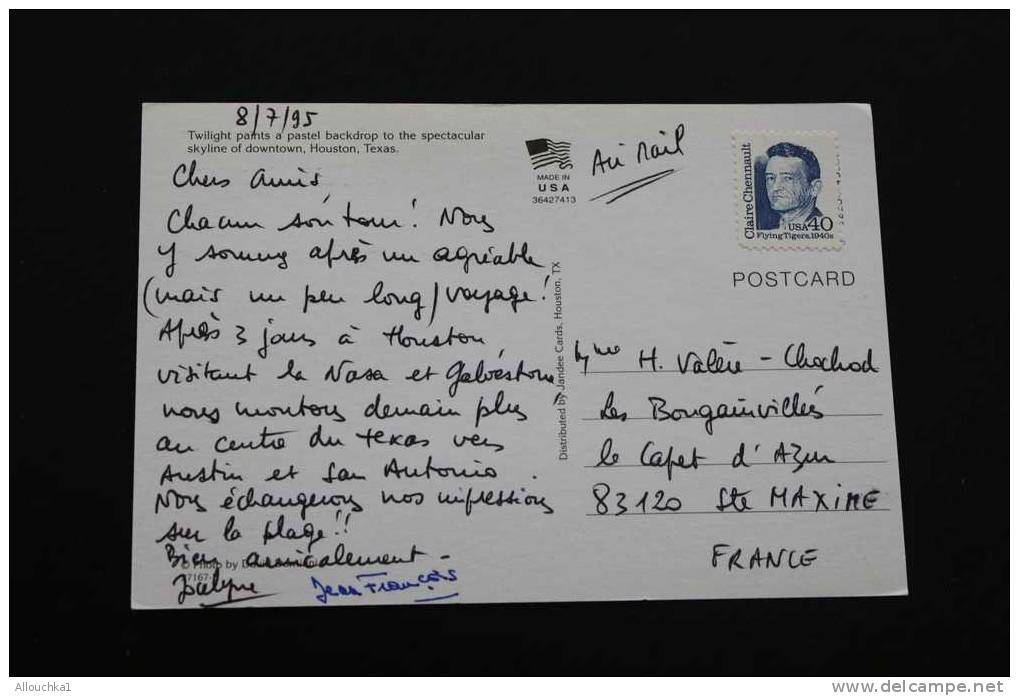 8/7/95
Twilight paints a pastel backdrop to the spectacular
skyline of downtown, Houston, Texas.
Chers amis,
Chacun son tour! Nous
y sommes après un agréable
(mais un peu long) voyage!
Après 3 jours à Houston
visitant la Nasa et Galvestone
nous montons demain plus
au centre du Texas vers
Austin et San Antonio.
Nous échangerons nos impressions
sur la plage!!
Bien amicalement -
Photo by
7167
Jocelyne Jean François
MADE IN
USA
36427413
Air Mail
Claire Chennault
USA 40
Flying Tigers, 1940s
POSTCARD
Distributed by Jandee Cards, Houston, TX
H. Valère - Chochod
Les Bougainvillés
le Capet d'Azur
83120 Ste MAXIME
FRANCE
Allouchka1
delcampe.net